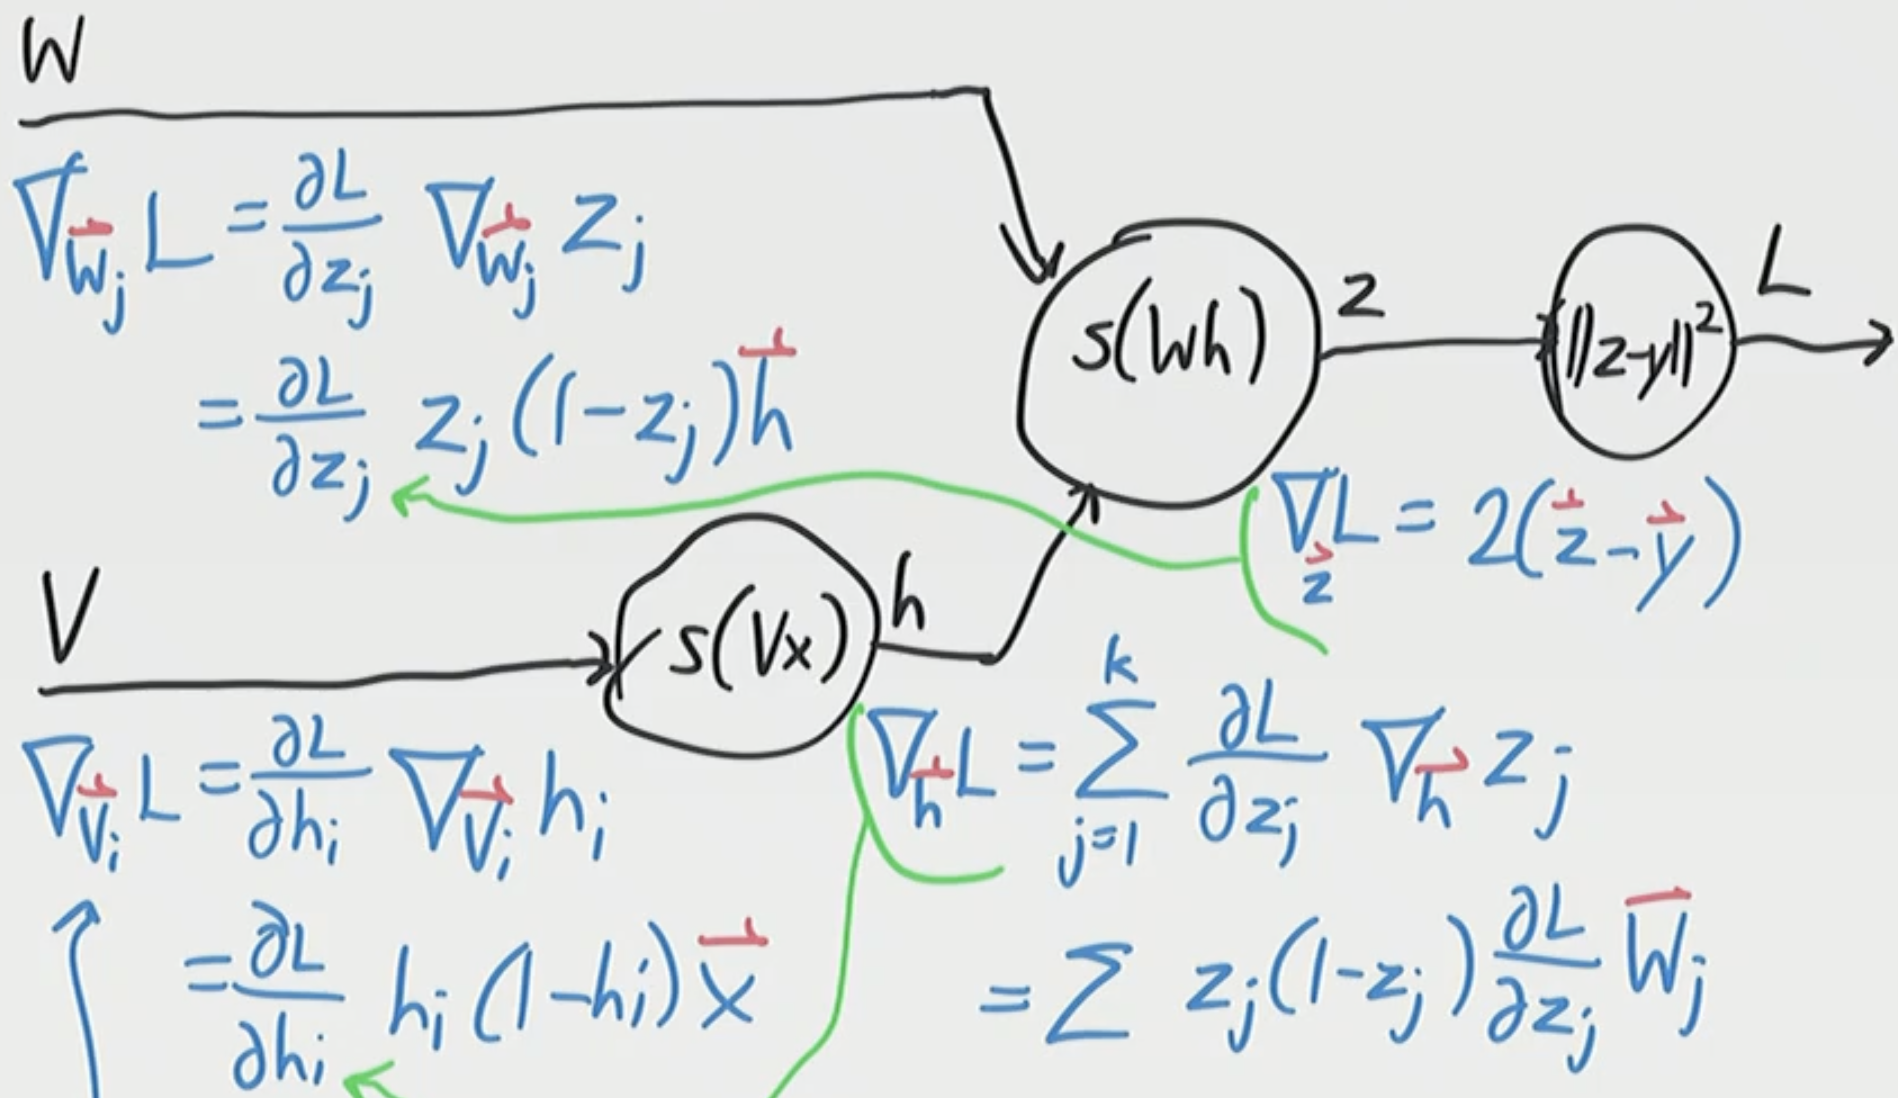 W
∇_{W⃗_j} L = ∂L/∂z_j ∇_{W⃗_j} z_j
= ∂L/∂z_j z_j (1-z_j) h⃗
s(Wh)
z
||z-y||²
L
∇_{z⃗} L = 2(z⃗ - y⃗)
V
s(Vx)
h
∇_{V⃗_i} L = ∂L/∂h_i ∇_{V⃗_i} h_i
= ∂L/∂h_i h_i (1-h_i) x⃗
∇_{h⃗} L = ∑_{j=1}^{k} ∂L/∂z_j ∇_{h⃗} z_j
= ∑ z_j (1-z_j) ∂L/∂z_j W⃗_j